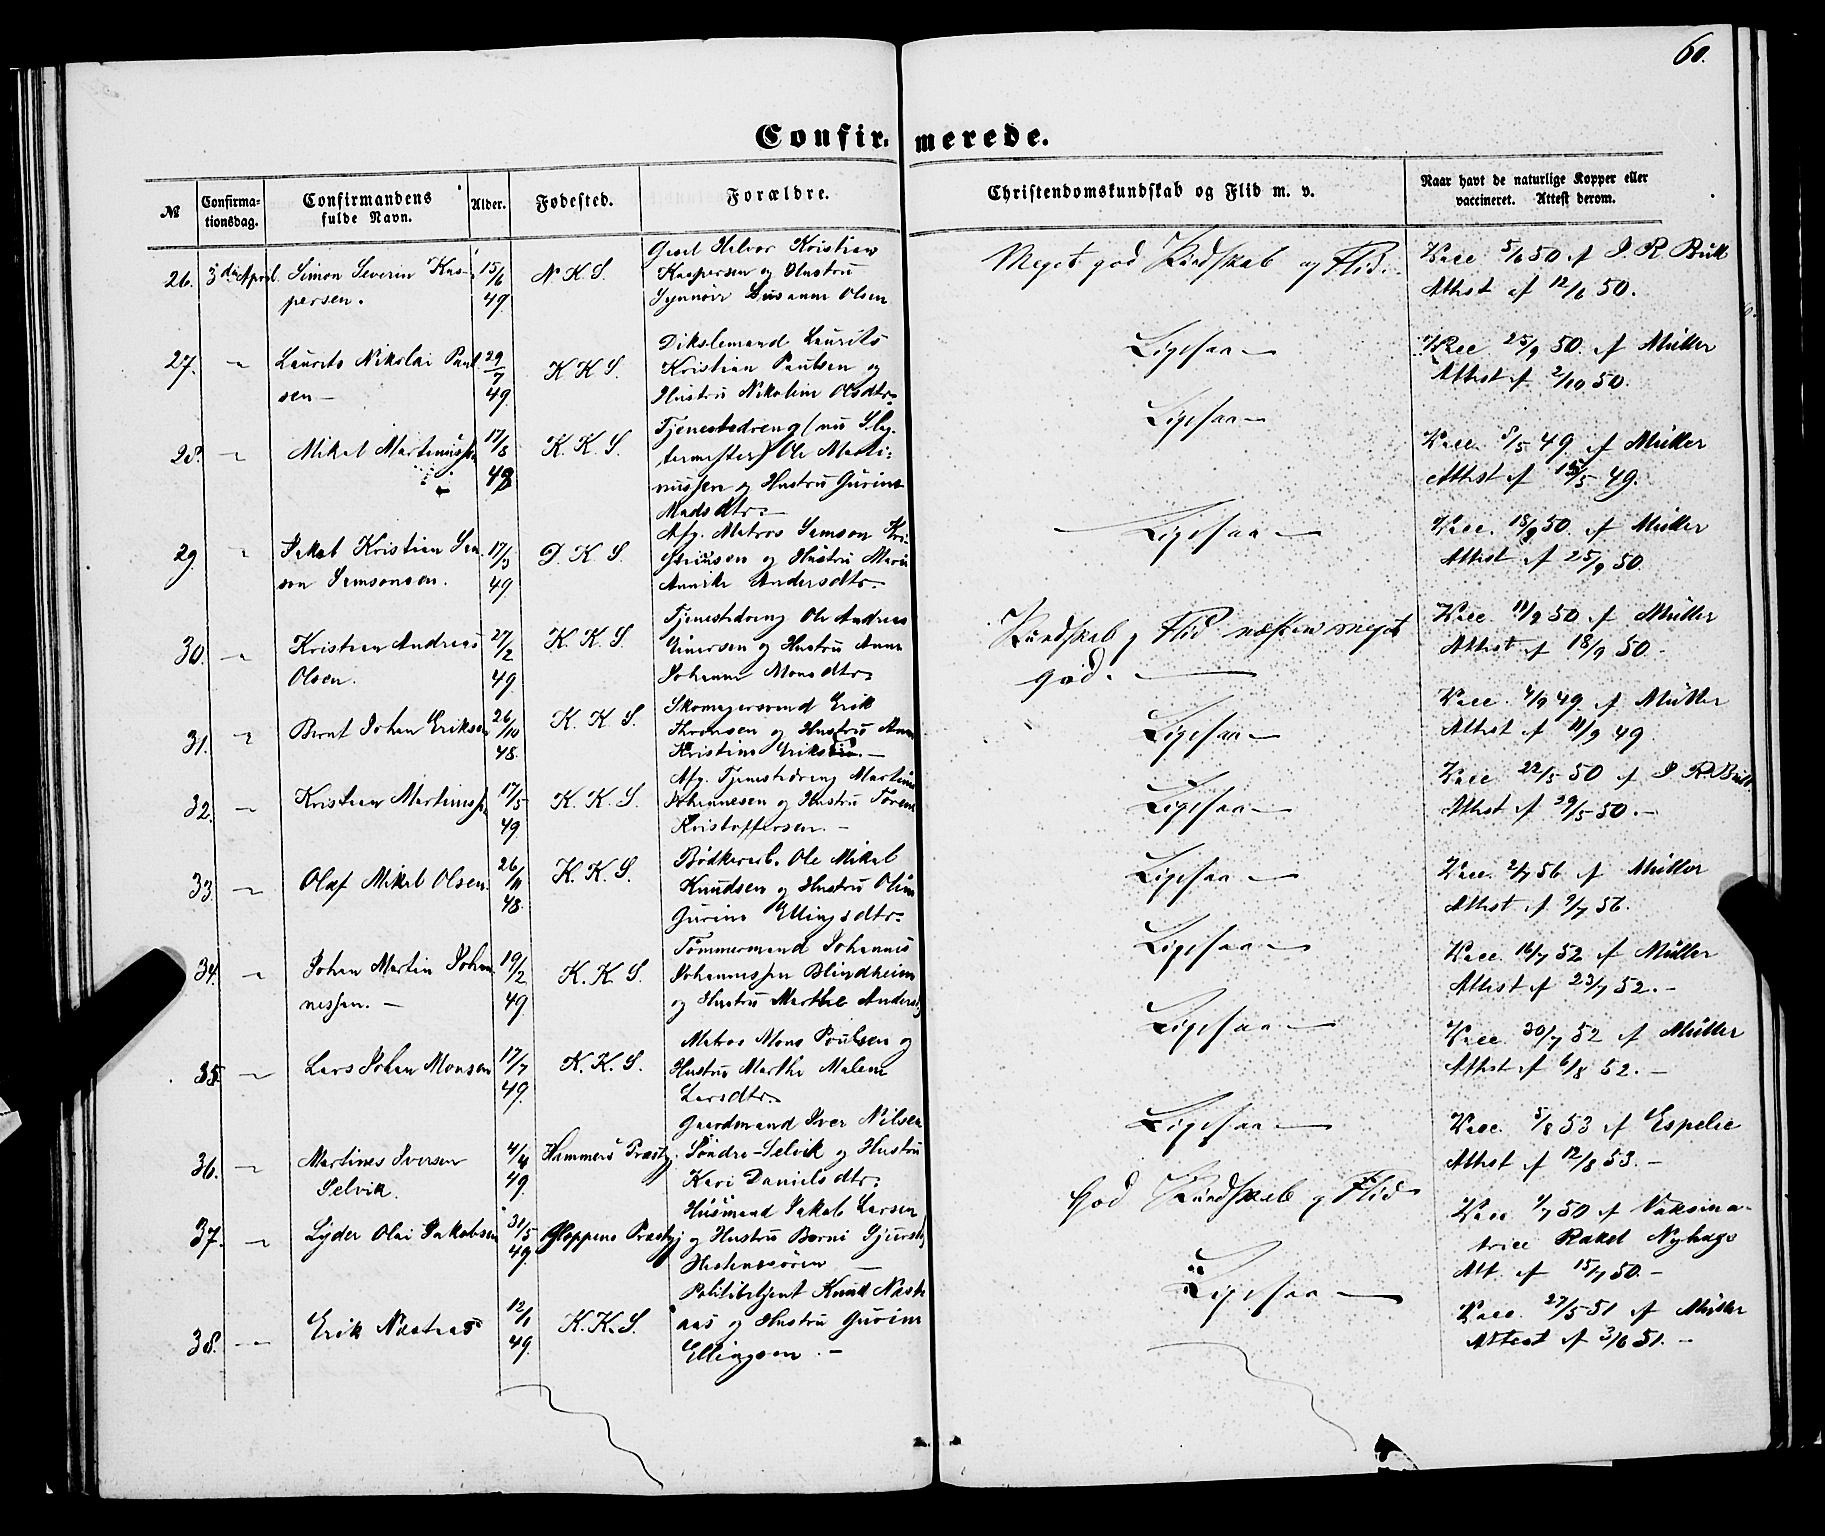 60.
Confirmerede.
№ Confirma-tionsdag. Confirmandens fulde Navn. Alder. Fødested. Forældre. Christendomskundskab og Flid m. v. Naar havt de naturlige Kopper eller vaccineret. Attest derom.
26. 3die April Simon Severin Kas- 15/6 N. K. S. Halvor Kristian Meget god Kundskab og Flid. Vacc. 5/6 50 af J. R. Buk
persen. 49. Kaspersen og Hustru Attest af 12/6 50.
Synnøve Susanne Olsen
27. " Laurits Nikolai Paul 29/7 K. K. S. Laurits Ligesaa Vacc. 25/9 50. af Müller
sen 49. Kristian Paulsen og Attest af 2/10 50.
Hustru Nikoline Olsdtr.
28. " Mikal Martinussen 17/8 K. K. S. Tjenestedreng (nu Sky- Ligesaa Vacc. 8/5 49. af Müller
48 termester) Ole Marti- Attest af 15/5 49.
nussen og Hustru Gurine
Madsdtr.
29. " Jakob Kristian Sam 17/3 D. K. S. Afg. Matros Samson Kri- Ligesaa Vacc. 18/9 50. af Müller
son Samsonsen. 49 og Hustru Maria Attest af 25/9 50.
Annike Andersdtr.
30. " Kristian Andreas 27/2 K. K. S. Tjenestedreng Ole Andreas Kundskab og Flid næsten meget Vacc. 11/9 50. af Müller
Olsen. 49. Einersen og Hustru Anne god. Attest af 18/9 50.
Johanne Monsdtr.
31. " Bernt Johan Eriksen 26/10 K. K. S. Skomagersvend Erik Ligesaa Vacc. 4/9 49. af Müller
48. Thronsen og Hustru Anne Attest af 11/9 49.
Kristine
32. " Kristian Martinussen 17/5 K. K. S. Afg. Tjenestedreng Martinus Ligesaa Vacc. 22/5 50 af J. R. Buk.
49. Johannesen og Hustru Attest af 29/5 50.
Kristoffersen.
33. " Olaf Mikal Olsen 26/11 K. K. S. Bødkerarb. Ole Mikal Ligesaa Vacc. 2/7 56. af Müller
48. Knudsen og Hustru Oline Attest af 9/7 56.
Gurine Ellingsdtr.
34. " Johan Martin Johan 19/2 K. K. S. Tömmermand Johannes Ligesaa Vacc. 16/7 52 af Müller
nessen. 49 Johannessen Blindheim Attest af 23/7 52.
og Hustru Marthe Anders
35. " Lars Johan Monsen 17/7 K. K. S. Matros Mons Poulsen og Ligesaa Vacc. 30/7 52 af Müller
49. Hustru Marthe Malene Attest af 6/8 52.
Larsdtr.
36. " Martines Iversen 4/4 Hammers Præstgj. Gaardmand Iver Nilsen Ligesaa Vacc. 5/8 53 af Espelie
Selvik. 49. Søndre-Selvik og Hustru Attest af 12/8 53.
Kari Danielsdtr.
37. " Lyder Olai Jakobsen 31/5 Gloppens Præstgj Husmand Jakob Larsen God Kundskab og Flid Vacc. 1/7 50 af Vaksina-
49. og Hustru trice Rakel Nyhage
Att. af 15/7 50.
38. " Erik Næstaas 12/1 K. K. S. Politibetjent Knud Næst Ligesaa Vacc. 27/5 51 af Müller
49. aas og Hustru Gurine Attest af 3/6 51.
Ellingsen.